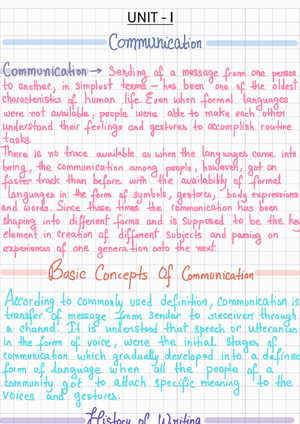 UNIT - I
Communication
Communication → Sending of a message from one person
to another, in simplest terms - has been one of the oldest
characteristics of human life. Even when formal languages
were not available, people were able to make each other
understand their feelings and gestures to accomplish routine
tasks.
There is no trace available as when the languages came into
being, the communication among people, however, got on
faster track than before with the availability of formal
languages in the form of symbols, gestures, body expressions
and words. Since those times the communication has been
shaping into different forms and is supposed to be the key
element in creation of different subjects and passing on
experiences of one generation onto the next.
Basic Concepts Of Communication
According to commonly used definition, communication is
transfer of message from sender to receiver through
a channel. It is understood that speech or utterances
in the form of voice, were the initial stages of
communication which gradually developed into a defined
form of language when all the people of a
community got to attach specific meaning to the
voices and gestures.
History of Writing